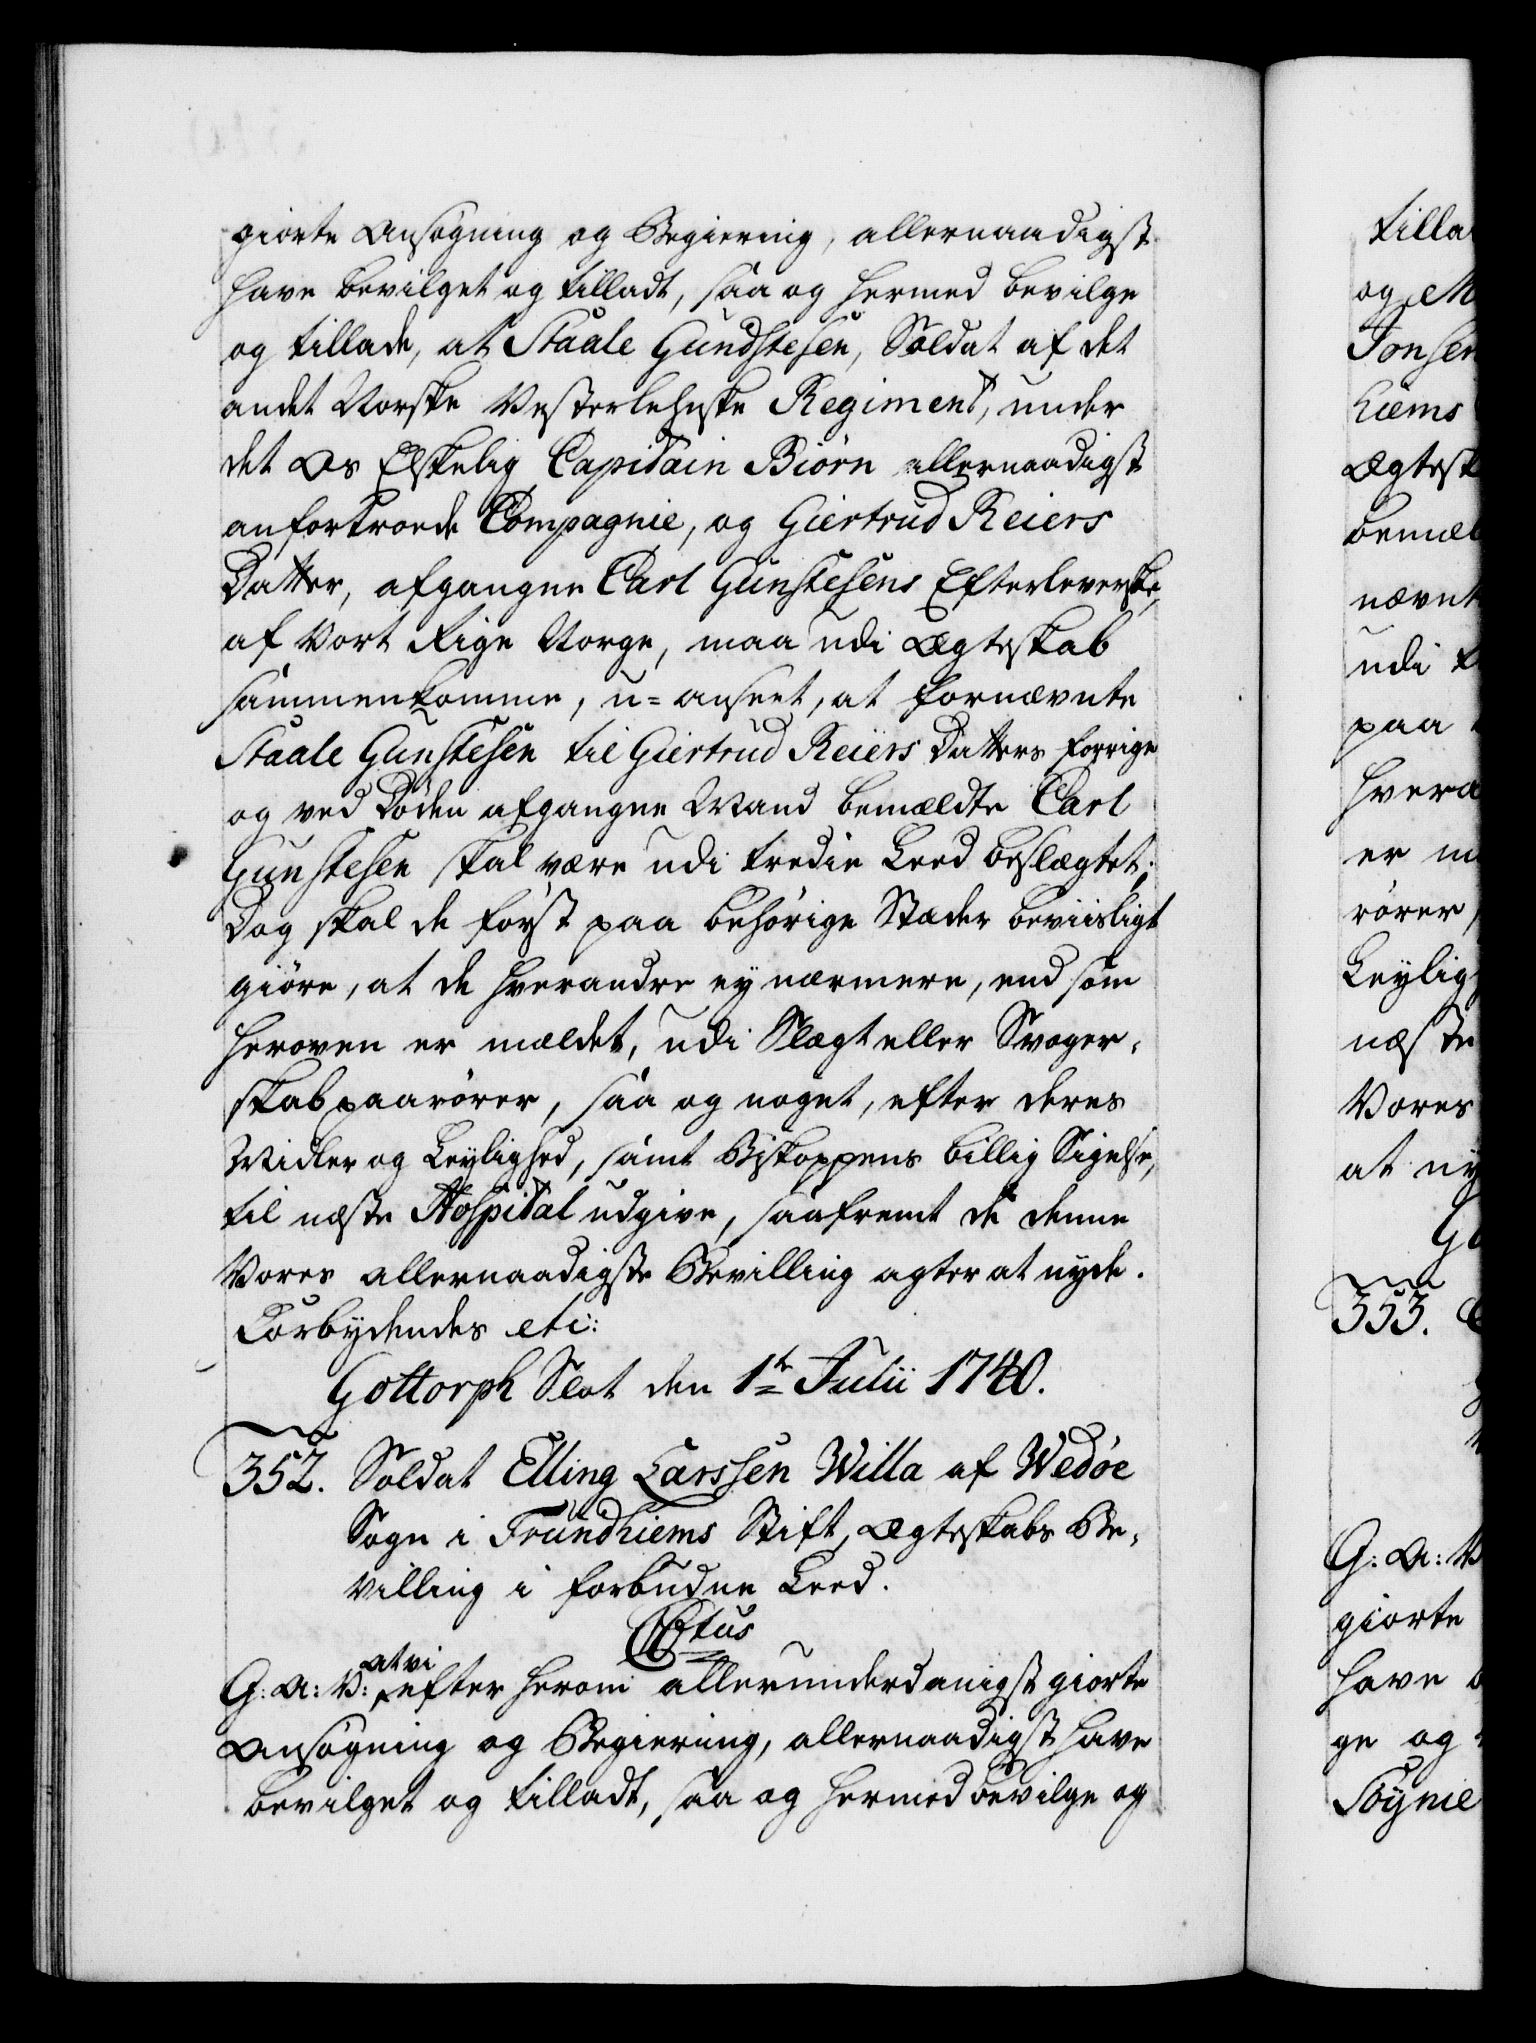 giorte Ansøgning og Begiering, allernaadigst
have bevilget og tilladt, saa og hermed bevilge
og tillade, at Staale Gundstesen, Soldat af det
andet Norske Vesterlehnske Regiment, under
det Os Elskelig Capitain Biørn allernaadigst
anfortroede Compagnie, og Giertrud Reiers
Datter, afgangne Carl Gunstesens Efterleverske,
af Vort Rige Norge, maa udi Ægteskab
sammenkomme, u=anseet, at fornævnte
Staale Gunstesen til Giertrud Reiers Datters forrige
og ved Døden afgangne Mand bemældte Carl
Gunstesen skal være udi tredie Leed beslægtet;
Dog skal de først paa behørige Stæder beviisligt
giøre, at de hverandre ey nærmere, end som
heroven er mældet, udi Slægt eller Svoger-
skab paarører, saa og noget, efter deres
Midler og Leylighed, samt Biskoppens billig Sigelse,
til næste Hospital udgive, saafremt de denne
Vores allernaadigste Bevilling agter at nyde.
Forbydendes etc:
Gottorph Slot den 1te Julii 1740.
352. Soldat Elling Larssen Willa af Wedøe
Sogn i Trundhiems Stift, Ægteskabs Be-
villing i forbudne Leed.
CVItus
at vi
G: A: V: efter herom allerunderdanigst giorte
Ansøgning og Begiering, allernaadigst have
bevilget og tilladt, saa og hermed bevilge og
og
Jonsen
hiems
Ægtesk
bemæl
nævnt
udi
paa
hvera
er
rører,
Leylig
næste
Vores
at ny
353.
G: A: V
giorte
have
ge og